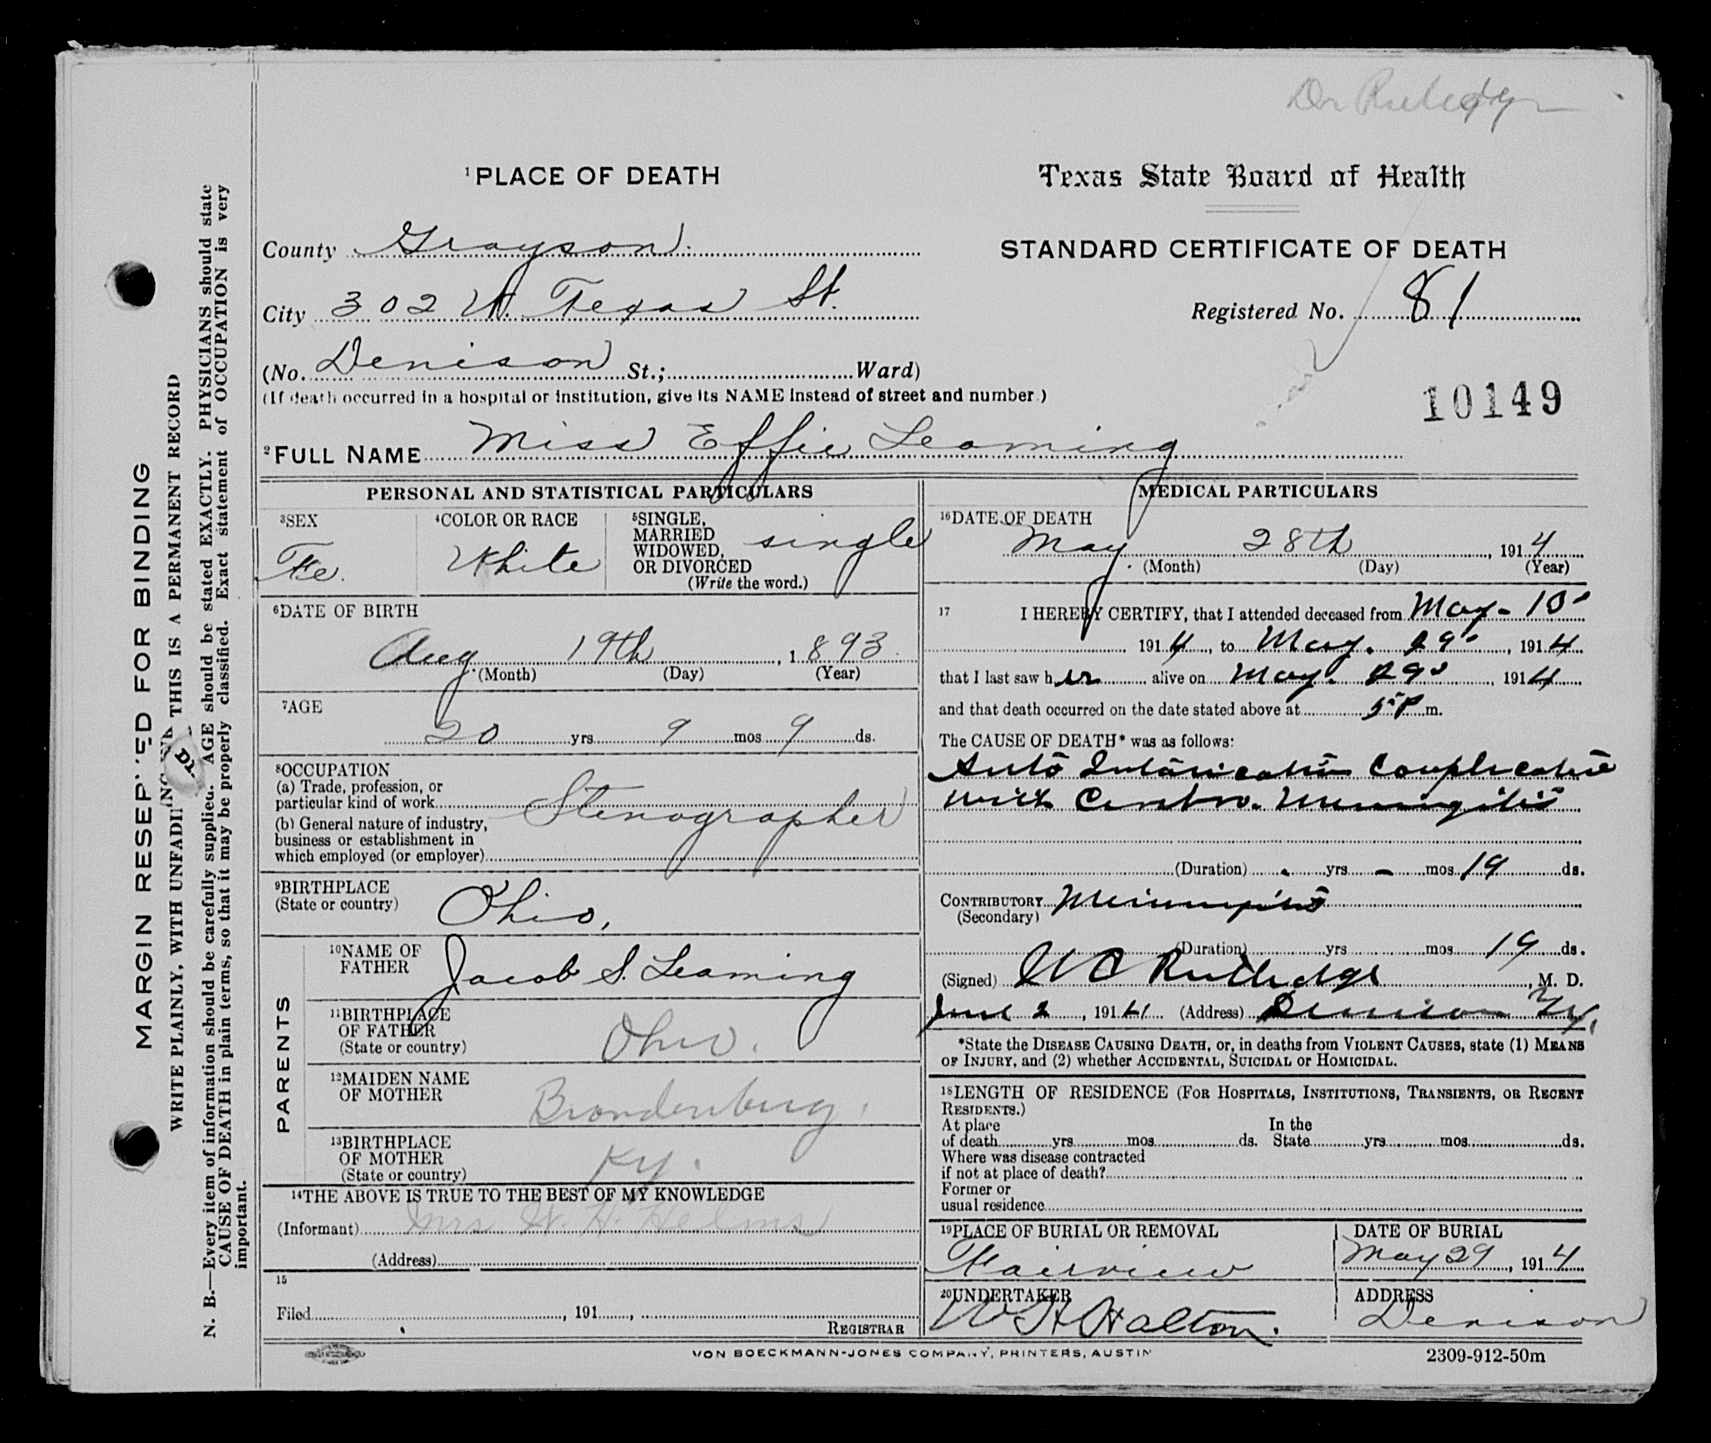 Dr Rutledge
1 PLACE OF DEATH
Texas State Board of Health
STANDARD CERTIFICATE OF DEATH
County Grayson
City 302 W. Texas St.
Registered No. 81
(No. Denison St.; Ward)
(If death occurred in a hospital or institution, give its NAME instead of street and number.)
10149
2 FULL NAME Miss Effie Leaming
PERSONAL AND STATISTICAL PARTICULARS
3 SEX
Fe.
4 COLOR OR RACE
White
5 SINGLE,
MARRIED
WIDOWED,
OR DIVORCED
(Write the word.)
single
6 DATE OF BIRTH
Aug. 19th, 1893
(Month) (Day) (Year)
7 AGE
20 yrs 9 mos 9 ds.
8 OCCUPATION
(a) Trade, profession, or
particular kind of work
Stenographer
(b) General nature of industry,
business or establishment in
which employed (or employer)
9 BIRTHPLACE
(State or country)
Ohio,
PARENTS
10 NAME OF
FATHER
Jacob S. Leaming
11 BIRTHPLACE
OF FATHER
(State or country)
Ohio.
12 MAIDEN NAME
OF MOTHER
Brandenburg.
13 BIRTHPLACE
OF MOTHER
(State or country)
Ky.
14 THE ABOVE IS TRUE TO THE BEST OF MY KNOWLEDGE
(Informant) Mrs W. H. Helms
(Address)
15
Filed , 191 ,
REGISTRAR
MEDICAL PARTICULARS
16 DATE OF DEATH
May 28th, 1914
(Month) (Day) (Year)
17 I HEREBY CERTIFY, that I attended deceased from May - 10
1914, to May. 29, 1914
that I last saw her alive on May. 29, 1914
and that death occurred on the date stated above at 5 P m.
The CAUSE OF DEATH* was as follows:
Auto Intoxication Complicated
with Cerebro. Meningitis
(Duration) - yrs - mos 19 ds.
CONTRIBUTORY Meningitis
(Secondary)
(Duration) yrs mos 19 ds.
(Signed) W C Rutledge, M. D.
June 2, 1914 (Address) Denison Tx.
*State the DISEASE CAUSING DEATH, or, in deaths from VIOLENT CAUSES, state (1) MEANS
OF INJURY, and (2) whether ACCIDENTAL, SUICIDAL or HOMICIDAL.
18 LENGTH OF RESIDENCE (FOR HOSPITALS, INSTITUTIONS, TRANSIENTS, OR RECENT
RESIDENTS.)
At place In the
of death yrs mos ds. State yrs mos ds.
Where was disease contracted
if not at place of death?
Former or
usual residence
19 PLACE OF BURIAL OR REMOVAL
Fairview
DATE OF BURIAL
May 29, 1914
20 UNDERTAKER
W H Halton.
ADDRESS
Denison
VON BOECKMANN-JONES COMPANY, PRINTERS, AUSTIN
2309-912-50m
MARGIN RESERVED FOR BINDING
WRITE PLAINLY, WITH UNFADING INK THIS IS A PERMANENT RECORD
N. B.—Every item of information should be carefully supplied. AGE should be stated EXACTLY. PHYSICIANS should state
CAUSE OF DEATH in plain terms, so that it may be properly classified. Exact statement of OCCUPATION is very
important.